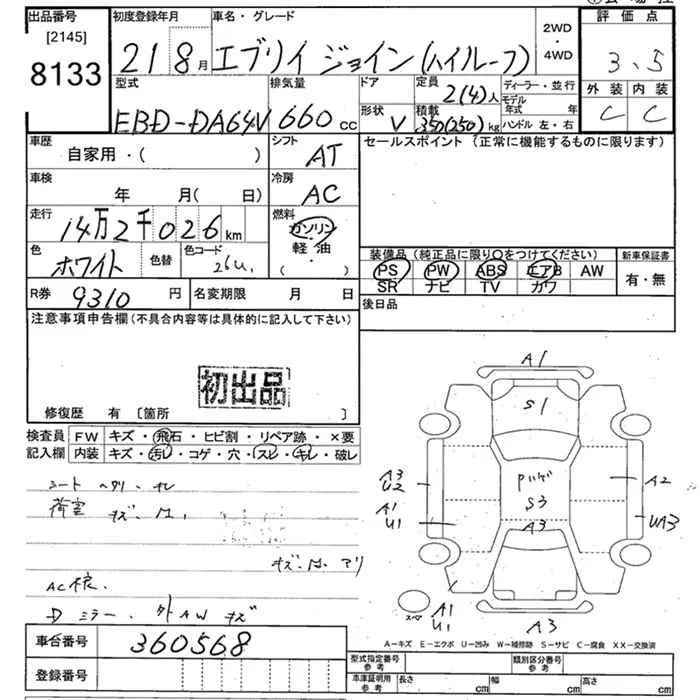 出品番号 初度登録年月 車名・グレード 2WD・4WD 評価点
[2145]
8133
21 8月 エブリイ ジョイン(ハイルーフ) 3.5
型式 排気量 ドア 定員 2(4)人 ディーラー・並行 外装 内装
EBD-DA64V 660cc 形状 V 積載 350(250)kg モデル年式 年 ハンドル 左・右 C C
車歴 自家用・( ) シフト AT セールスポイント(正常に機能するものに限ります)
車検 年 月(日) 冷房 AC
走行 14万2千026km 燃料 ガソリン 軽・油 ( )
色 ホワイト 色替 色コード 26U.
装備品(純正品に限り○をつけてください) 新車保証書
PS PW ABS エアB AW 有・無
SR ナビ TV カワ
R券 9310円 名変期限 月 日 後日品
注意事項申告欄(不具合内容等は具体的に記入して下さい)
初出品
修復歴 有 [箇所 ]
検査員 FW キズ・飛石・ヒビ割・リペア跡・×要
記入欄 内装 キズ・汚レ・コゲ・穴・スレ・キレ・破レ
シート ヘタリ・
荷室 キズ・
キズ・ アリ
AC
D ミラー・外AW キズ
車台番号 360568
登録番号
A1
S1
A3
U2
A1
U1
S3
A3
A2
UA3
スペア
A1
U1
A3
A-キズ E-エクボ U-凹み W-補修跡 S-サビ C-腐食 XX-交換済
型式指定番号 参考 類別区分番号 参考
車庫証明用 参考 長さ cm 幅 cm 高さ cm